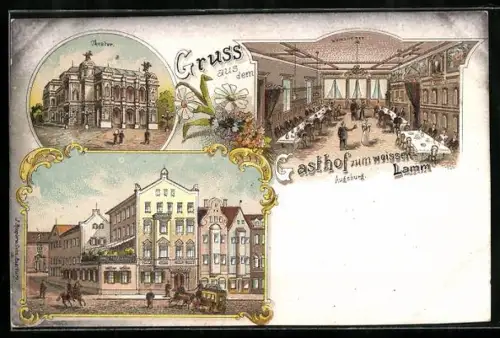 Theater.
Gruss
aus
dem
Gasthof zum weissen
Lamm
Augsburg.